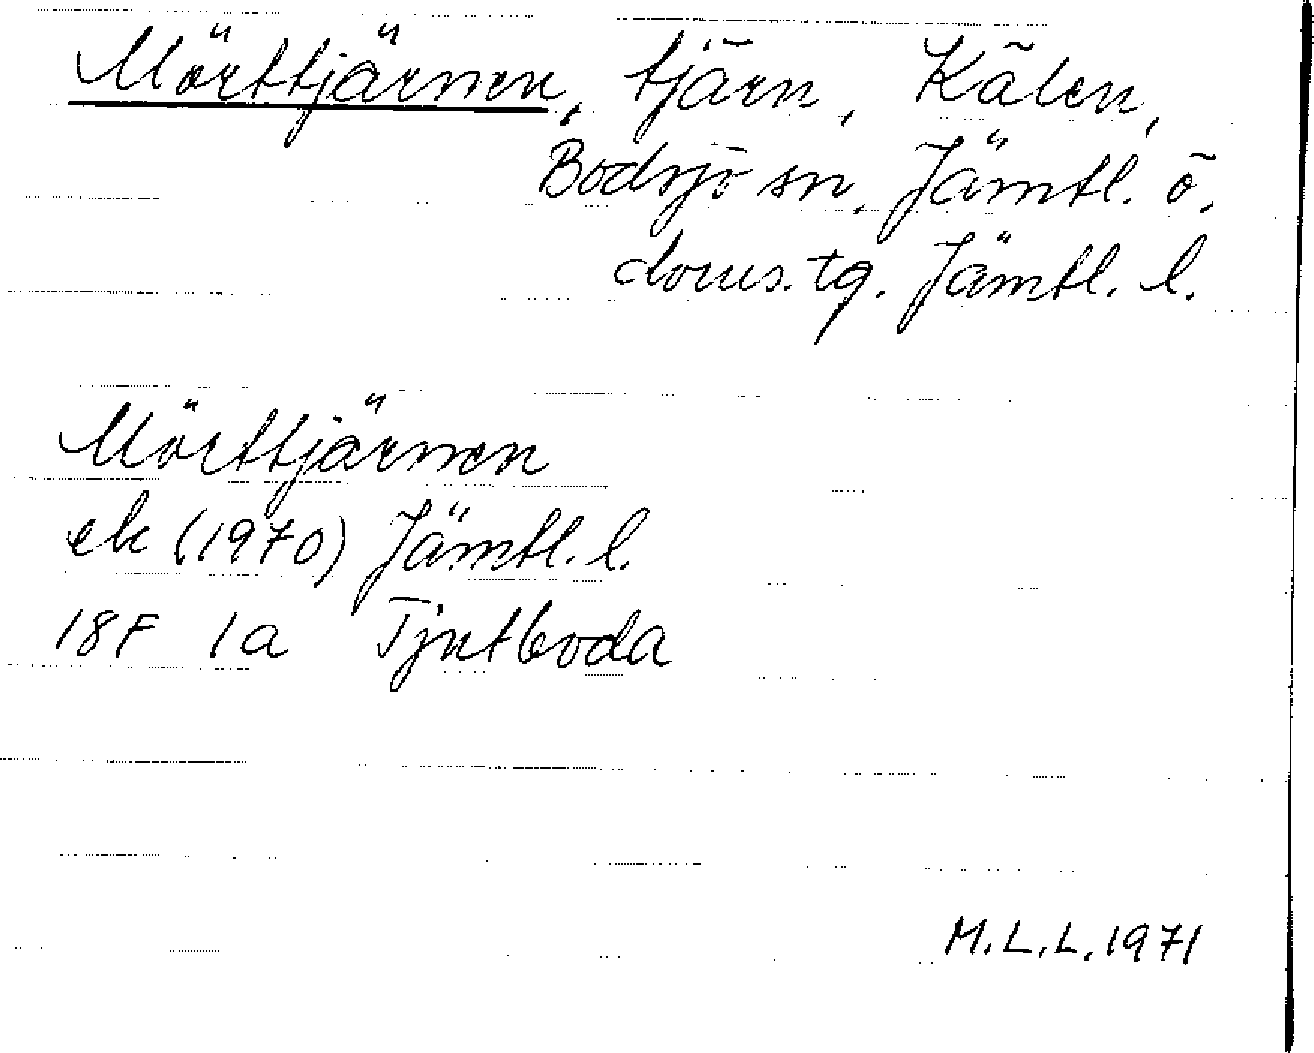 Mörttjärnen, tjärn, Kälen,
Bodsjö sn, Jämtl. ö.
doms.tg. Jämtl. l.
Mörttjärnen
ek (1970) Jämtl. l.
18F 1a Tjutboda
M.L.L. 1971